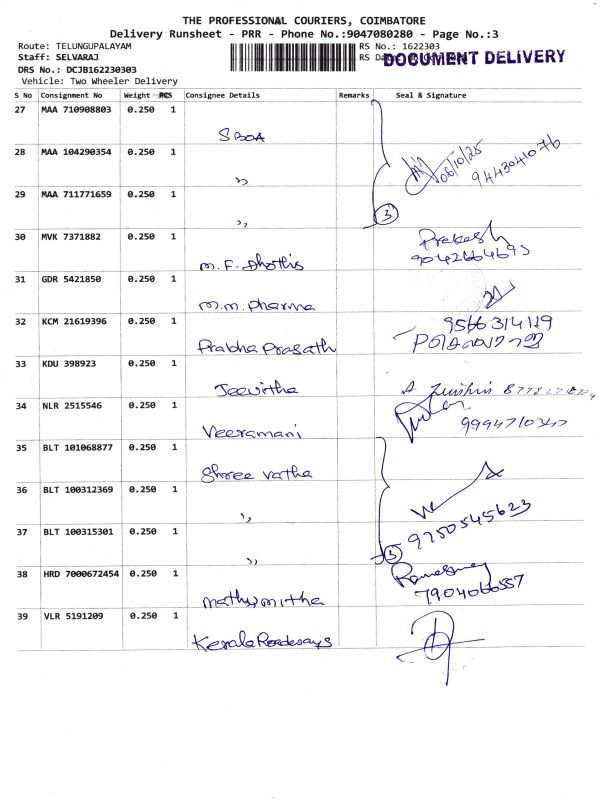 THE PROFESSIONAL COURIERS, COIMBATORE
Delivery Runsheet - PRR - Phone No.:9047080280 - Page No.:3
Route: TELUNGUPALAYAM RS No.: 1622303
Staff: SELVARAJ RS DOCUMENT DELIVERY
DRS No.: DCJB162230303
Vehicle: Two Wheeler Delivery
S No Consignment No Weight PCS Consignee Details Remarks Seal & Signature
27 MAA 710908803 0.250 1
SBOA
28 MAA 104290354 0.250 1
,, 06/10/25 9443041076
29 MAA 711771659 0.250 1
,, 3
30 MVK 7371882 0.250 1 Prakash
M.F. Dhothis 9042664693
31 GDR 5421850 0.250 1
M.M. Pharma
32 KCM 21619396 0.250 1 9566314119
Prabha Prasath
33 KDU 398923 0.250 1
Jeevitha
34 NLR 2515546 0.250 1
Veeramani
35 BLT 101068877 0.250 1
Shree Vatha
36 BLT 100312369 0.250 1
,, 9250545623
37 BLT 100315301 0.250 1
,, 3
38 HRD 7000672454 0.250 1
Mathumitha 7904066557
39 VLR 5191209 0.250 1
Kerala Roadways